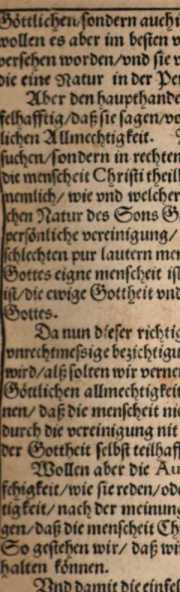 Göttlichen/sondern auch i
wollen es aber im besten v
versehen worden/vnd sie v
die eine Natur in der Per
Aber den haupthande
felhafftig/daß sie sagen/vo
lichen Allmechtigkeit.
suchen/sondern in rechten
die menscheit Christi theilh
nemlich/wie vnd welcher
chen Natur des Sons G
persönliche vereinigung/
schlechten pur lautern men
Gottes eigne menscheit ist
ist/die ewige Gottheit vnd
Gottes.
Da nun dieser richtig
vnrechtmessige bezichtigu
wird/alß solten wir vernei
Göttlichen allmechtigkeit
nen/daß die menscheit nic
durch die vereinigung nit
der Gottheit selbst teilhaff
Wollen aber die Au
fehigkeit/wie sie reden/ode
tigkeit/nach der meinung
gen/daß die menscheit Ch
So gestehen wir/daß wir
halten können.
Vnd damit die einfel